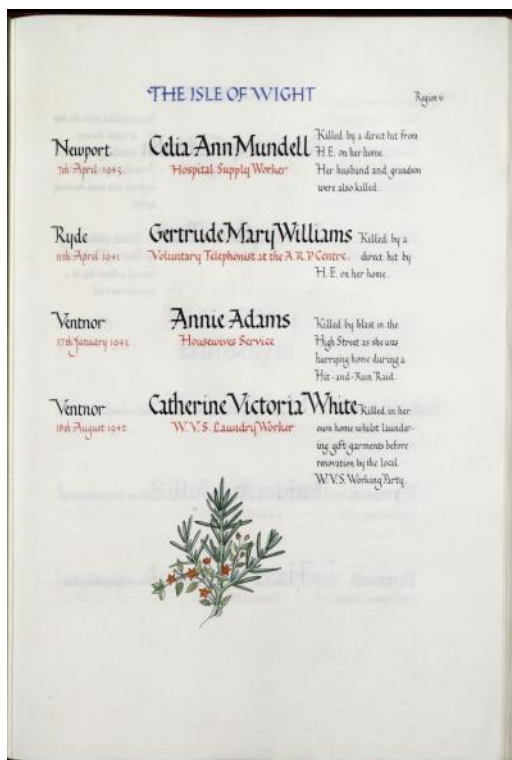 THE ISLE OF WIGHT
Region 6
Newport
7th April 1943
Celia Ann Mundell
Hospital Supply Worker
Killed by a direct hit from
H.E. on her home.
Her husband and grandson
were also killed.
Ryde
11th April 1941
Gertrude Mary Williams
Voluntary Telephonist at the A.R.P Centre.
Killed by a
direct hit by
H.E. on her home.
Ventnor
17th January 1943
Annie Adams
Housewives Service
Killed by blast in the
High Street as she was
hurrying home during a
Hit-and-Run Raid.
Ventnor
18th August 1942
Catherine Victoria White
W.V.S. Laundry Worker
Killed in her
own home whilst launder-
ing gift garments before
renovation by the local
W.V.S. Working Party.